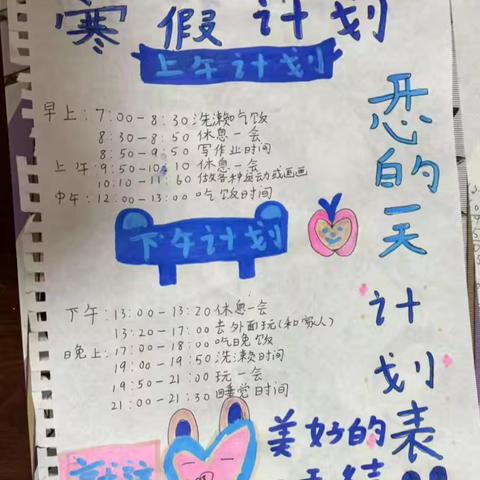 寒假计划
上午计划
早上：7：00－8：30洗漱吃饭
8：30－8：50休息一会
8：50－9：50写作业时间
上午：9：50－10：10休息一会
10：10－11：60做各种运动或画画
中午：12：00－13：00吃饭时间
下午计划
下午：13：00－13：20休息一会
13：20－17：00去外面玩(和家人)
晚上：17：00－18：00吃晚饭
19：00－19：50洗漱时间
19：50－21：00玩一会
21：00－21：30睡觉时间
的一天计划表
美好的